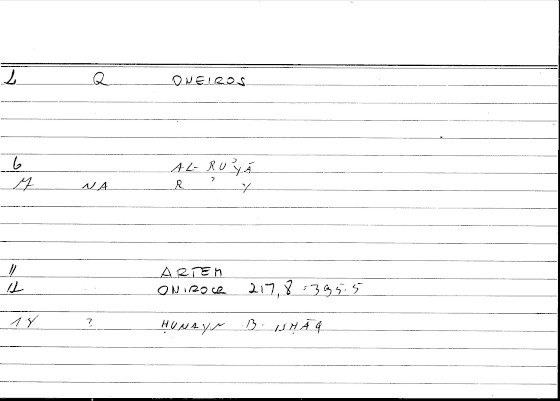 1 Q ONEIROS
6 AL-RUʾYĀ
17 NA R ʾ Y
11 ARTEM
12 ONIROCR 217,8 = 395.5
18 ? ḤUNAYN B. ISḤĀQ